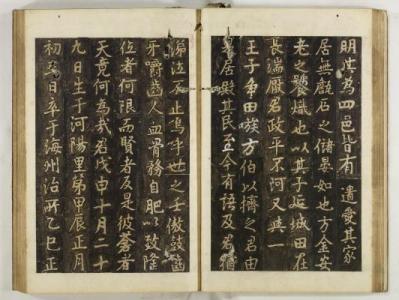 明其為四邑皆有遺愛其家
居無儋石之儲晏如也方金安
老之饕熾也以其子延城田在
長湍厭君政平不河又其一
王子争田嗾方伯以擠之君由
居殿其民至今有語及君
涕泣不止嗚呼世之壬儌
牙嚼齒人血骨務自肥以致隆
位者何限而賢者反是彼蒼者
天竟何為哉君戊申十月二十
九日生于河陽里第甲辰正月
初日卒于海州治所乙巳正